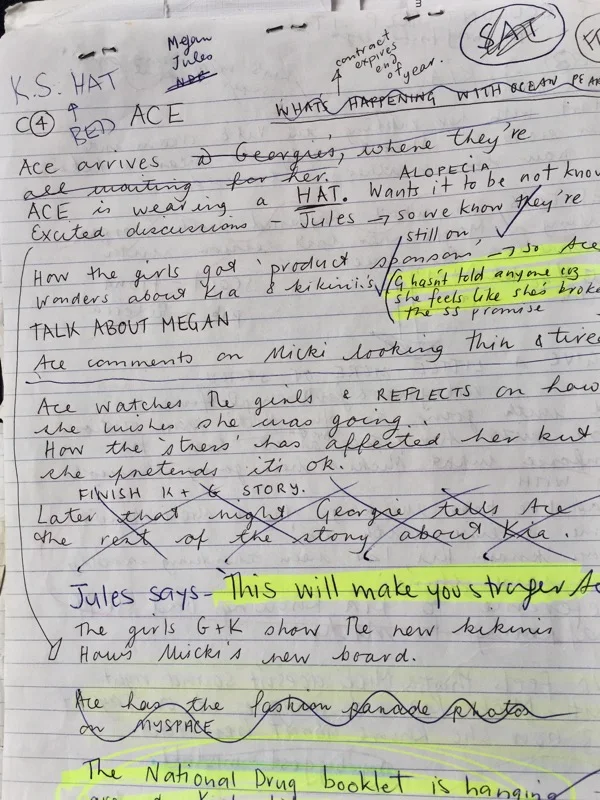 Megan
Jules
contract
expires
end
of year.
SAT
K.S. HAT
C④ BED ACE
WHATS HAPPENING WITH OCEAN PEA
Ace arrives @ Georgies, where they're
all waiting for her.
ALOPECIA
ACE is wearing a HAT. Wants it to be not know
Excited discussions - Jules → so we know they're
still on
How the girls got 'product sponsor' → so Ace
wonders about Kia & kikinii's
G hasn't told anyone coz
she feels like she's broke
the SS promise
TALK ABOUT MEGAN
Ace comments on Micki looking thin & tired
Ace watches the girls & REFLECTS on how
she wishes she was going..
How the 'stress' has affected her but
she pretends it's ok.
FINISH K + G STORY.
Later that night Georgie tells Ace
the rest of the story about Kia.
Jules says - This will make you stronger
The girls G+K show the new kikinis
Haws Micki's new board.
Ace has the fashion parade photos
on MYSPACE
The National Drug booklet is hanging